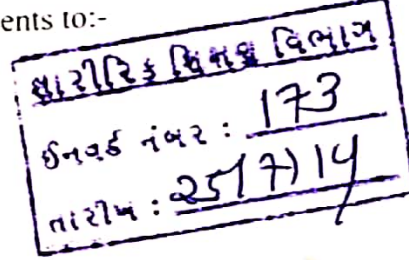 ents to:-
શારીરિક શિક્ષણ વિભાગ
ઈનવર્ડ નંબર : 173
તારીખ : 25/7/14